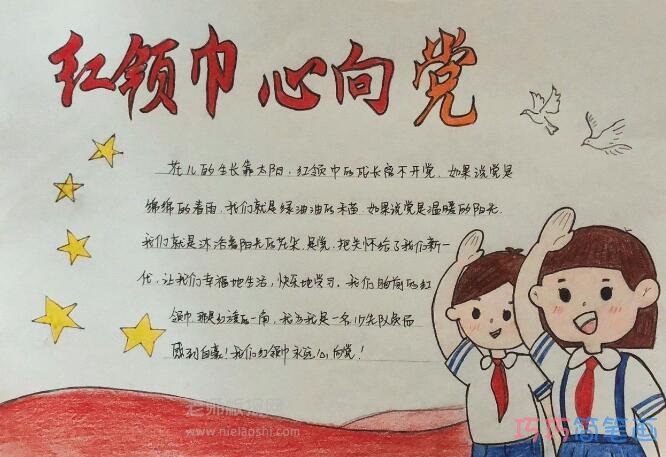 红领巾心向党
花儿的生长靠太阳，红领巾的成长离不开党．如果说党是
绵绵的春雨，我们就是绿油油的禾苗．如果说党是温暖的阳光．
我们就是沐浴着阳光的花朵．是党．把关怀给了我们新一
代，让我们幸福地生活，快乐地学习．我们的胸前的红
领巾 那是红旗的一角，我为我是一名少先队员而
感到自豪！我们红领巾永远心向党！
老师板报网
www.nielaoshi.com
巧巧简笔画